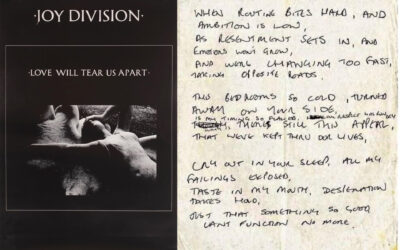 ·JOY DIVISION·
·LOVE WILL TEAR US APART·
WHEN ROUTINE BITES HARD, AND
AMBITION IS LOW,
AS RESENTMENT SETS IN, AND
EMOTIONS WONT GROW,
AND WERE CHANGING TOO FAST,
TAKING OPPOSITE ROADS.
THIS BEDROOMS SO COLD, TURNED
AWAY ON YOUR SIDE,
IS MY TIMING SO FLAWED,
THERES STILL THIS APPEAL,
THAT WEVE KEPT THRU OUR LIVES,
CRY OUT IN YOUR SLEEP, ALL MY
FAILINGS EXPOSED,
TASTE IN MY MOUTH, DESPERATION
TAKES HOLD,
JUST THAT SOMETHING SO GOOD
CANT FUNCTION NO MORE.